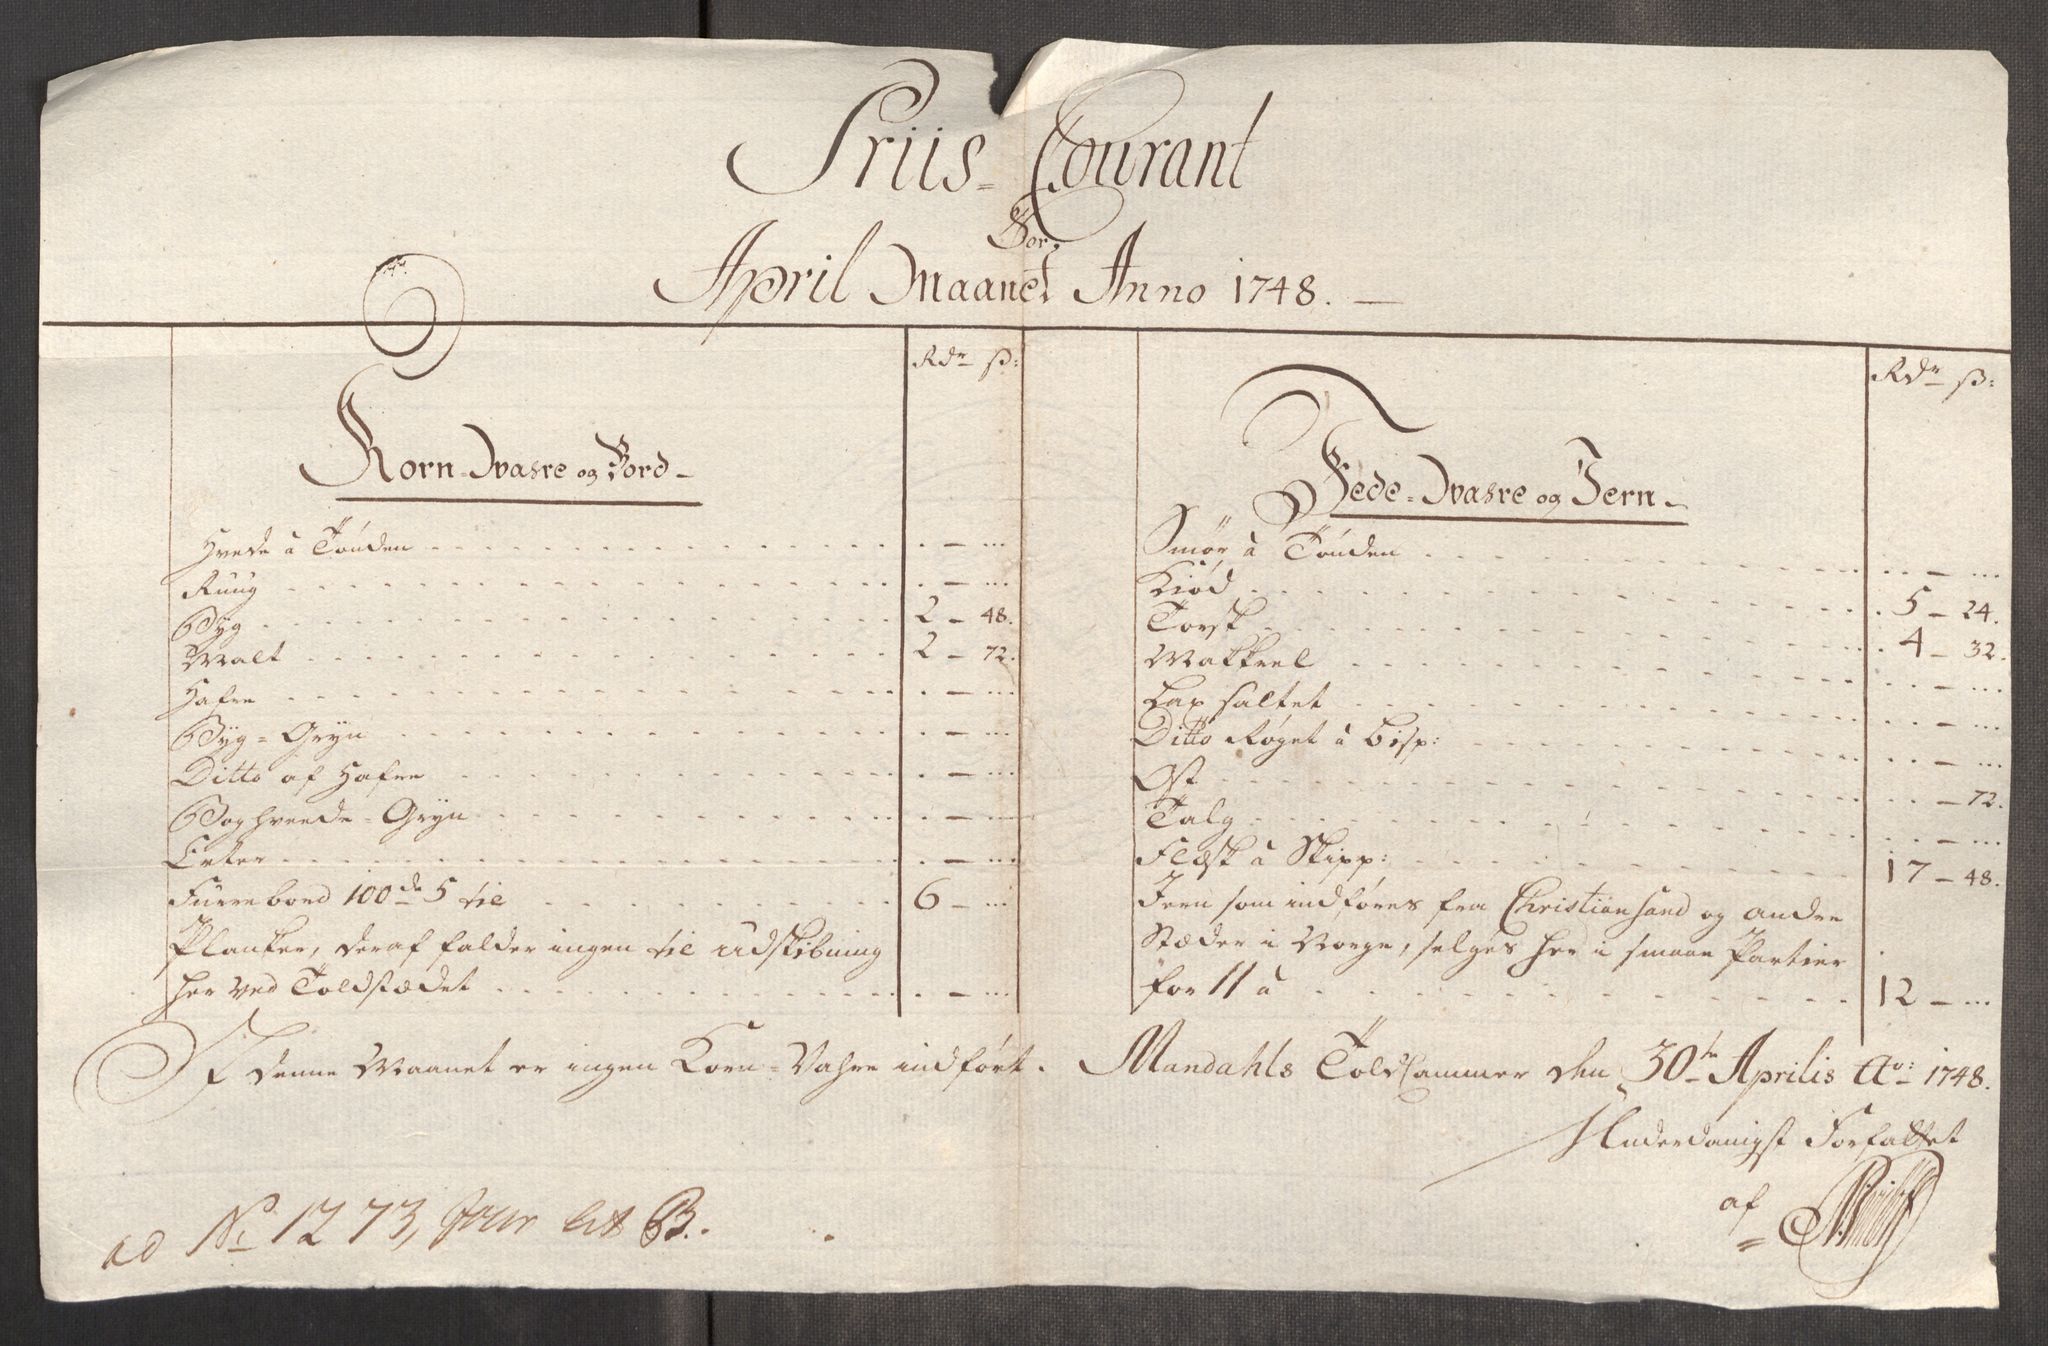 Priis-Courant
For
April Maanet Anno 1748.
Rdr ß:
Korn-Wahre og Bord
Hvede à Tönden . — ...
Ruug . — ...
Byg 2 - 48.
Malt 2 - 72.
Hafre . — ...
Byg-Gryn . — ...
Ditto af Hafre . — ...
Boghveede-Gryn . — ...
Erter . — ...
Furrebord 100de 5 til 6 - ...
Planker, deraf falder ingen til Udskibning
her ved Toldstædet . — ...
Rdr ß:
Fede-Wahre og Jern
Smör à Tönden . . — ...
Kiød 5 - 24.
Torsk 4 - 32.
Makkrel . . — ...
Lax saltet . . — ...
Ditto Røget à Bisp: . . — ...
Ost . . — 72.
Talg . . — ...
Flesk à Skipp: 17 - 48.
Jern som indføres fra Christiansand og andre
Stæder i Norge, selges her i smaae Partier
for 11 à 12 - ...
I denne Maanet er ingen Korn-Vahre indført.
Mandahls Told Cammer den 30te Aprilis Ao: 1748.
Underdanigst Forfattet
af
ad No 1273, Jour Lit B.